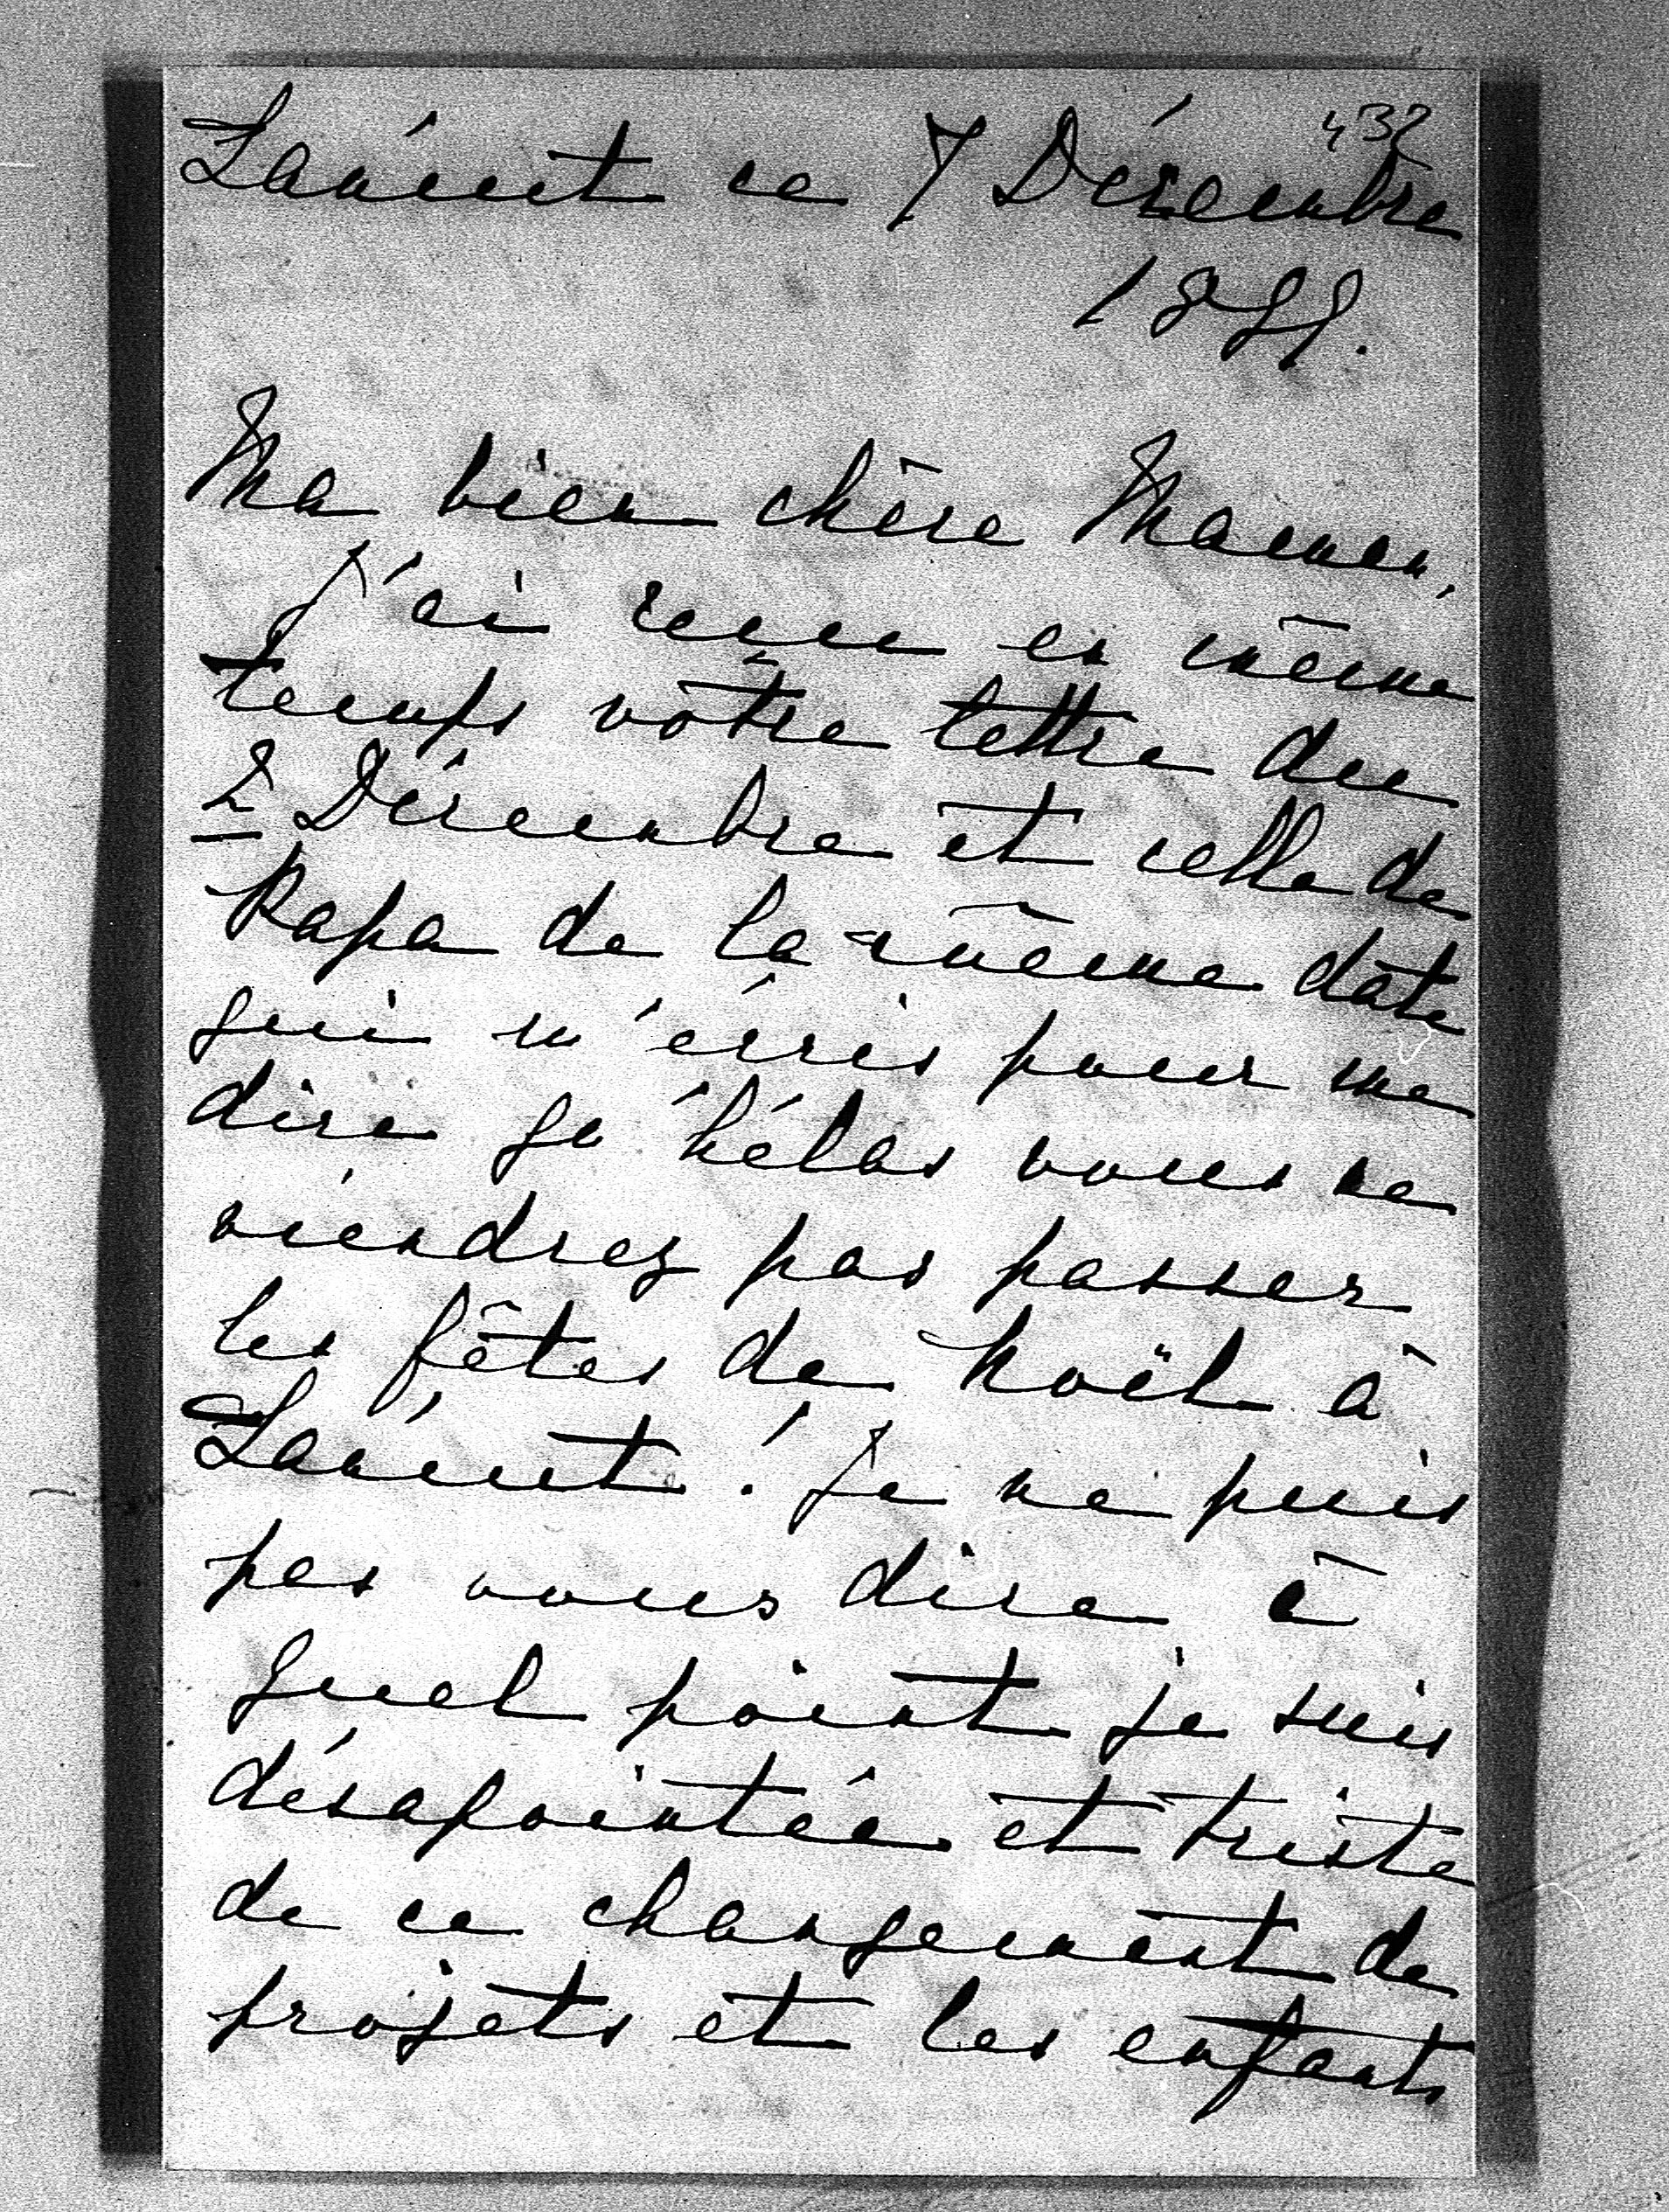 432
Lanéut ce 7 Décembre
18
Ma bien chère Maman,
J'ai reçu en même
temps vôtre lettre du
2 Décembre et celle de
Papa de la même date
qui m'écris pour me
dire qu'hélas vous ne
viendrez pas passer
les fêtes de Noël à
Lanéut! Je ne puis
pas vous dire à
quel point je suis
désapointée et triste
de ce changement de
projets et les enfants